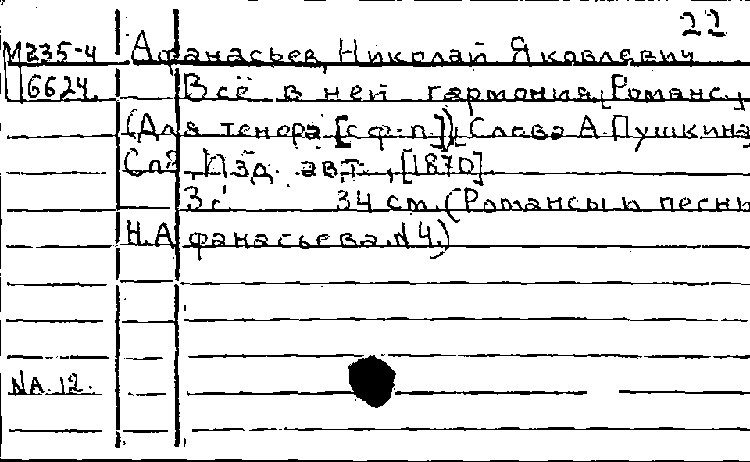 22
М235-4 Афанасьев, Николай Яковлевич
6624. Всё в ней гармония. [Романс.]
(Для тенора [с ф-п]). Слова А. Пушкина
Спб, Изд. авт., [1870].
3 с. 34 см. (Романсы и песни
Н. Афанасьева. N 4.)
NА. 12.